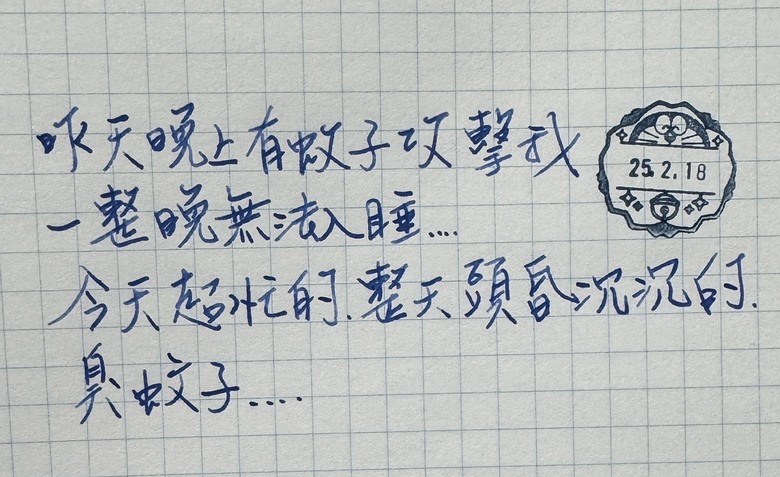 昨天晚上有蚊子攻擊我
25.2.18
一整晚無法入睡....
今天超忙的.整天頭昏沉沉的.
臭蚊子....